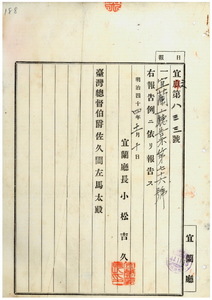 188
報告
宜蘭廳
宜庶第八三三號
一宜蘭廳報第七十六號
右報告例ニ依リ報告ス
明治四十四年 月十日
宜蘭廳長小松吉久
臺灣總督伯爵佐久間左馬太殿